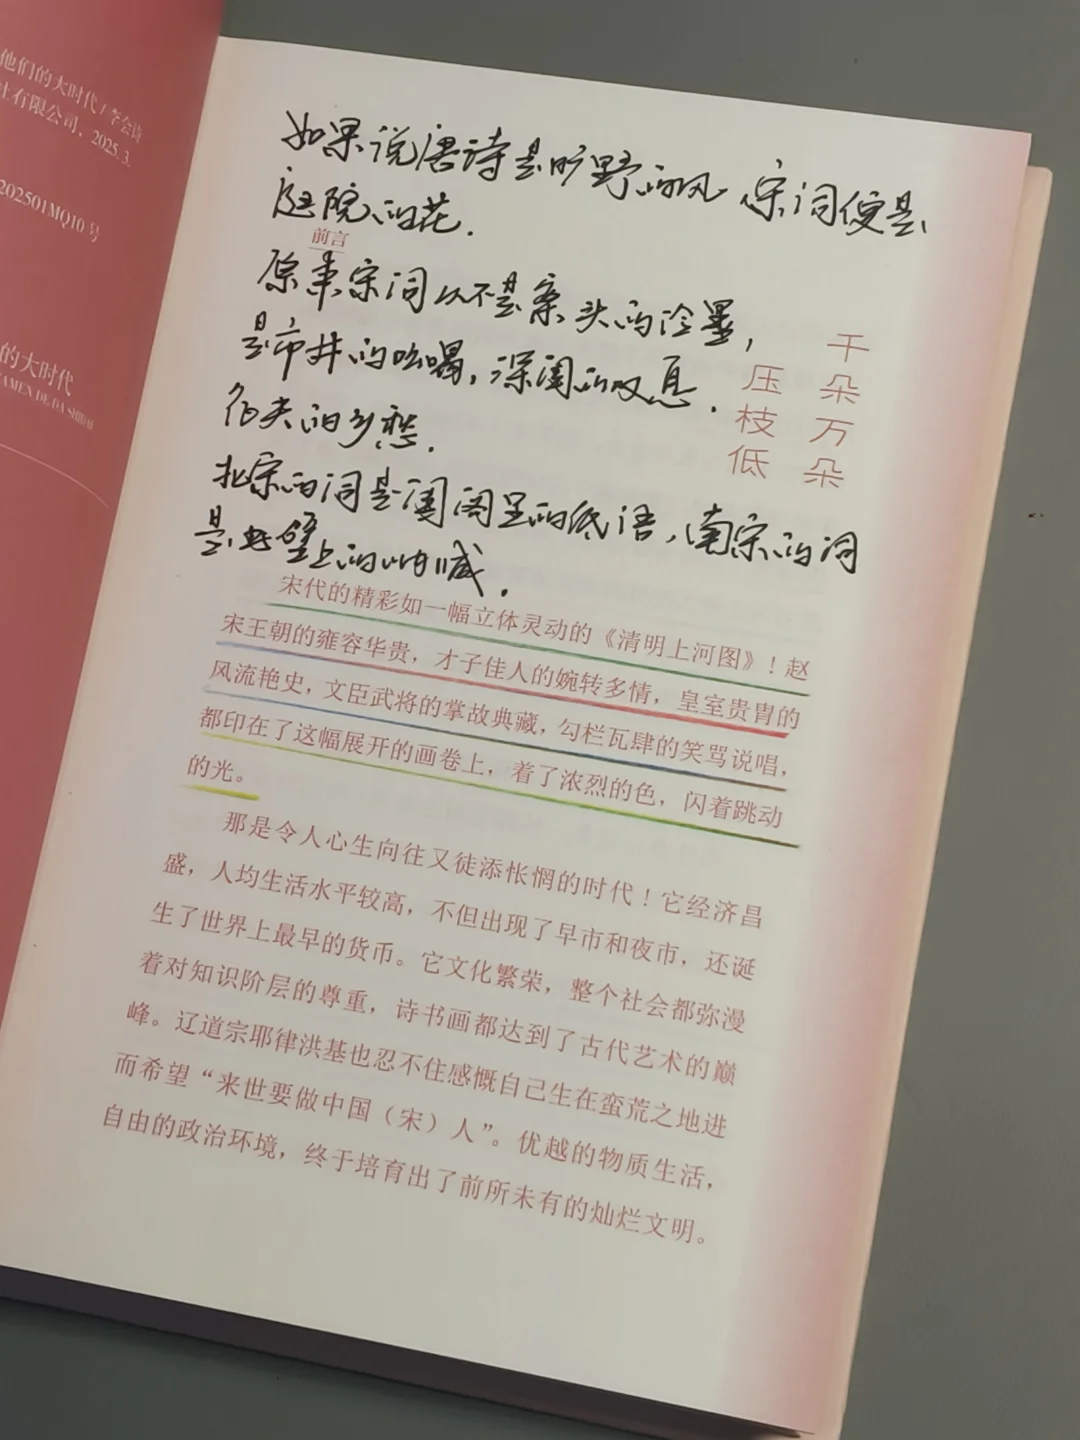 他们的大时代 / 李会诗
社有限公司, 2025.3.
202501MQ10 号
的大时代
AMEN DE DA SHIDAI
如果说唐诗是旷野的风、宋词便是
庭院的花.
前言
原来宋词从不是案头的冷墨,
是市井的吆喝, 深闺的叹息.
征夫的乡愁.
北宋的词是闺阁里的低语, 南宋的词
是上的呐喊.
千朵万朵
压枝低
宋代的精彩如一幅立体灵动的《清明上河图》！赵
宋王朝的雍容华贵，才子佳人的婉转多情，皇室贵胄的
风流艳史，文臣武将的掌故典藏，勾栏瓦肆的笑骂说唱，
都印在了这幅展开的画卷上，着了浓烈的色，闪着跳动
的光。
那是令人心生向往又徒添怅惘的时代！它经济昌
盛，人均生活水平较高，不但出现了早市和夜市，还诞
生了世界上最早的货币。它文化繁荣，整个社会都弥漫
着对知识阶层的尊重，诗书画都达到了古代艺术的巅
峰。辽道宗耶律洪基也忍不住感慨自己生在蛮荒之地进
而希望“来世要做中国（宋）人”。优越的物质生活，
自由的政治环境，终于培育出了前所未有的灿烂文明。